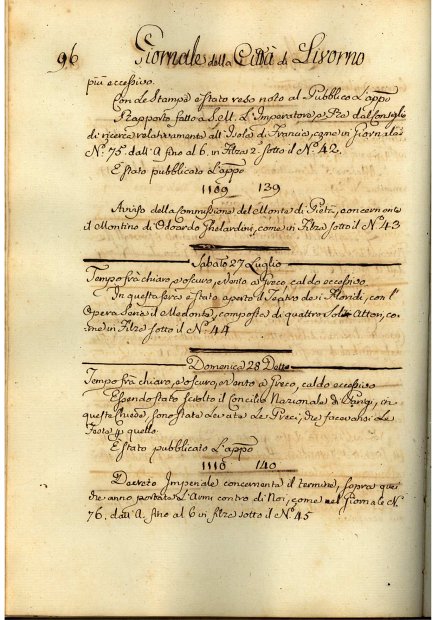 96 Giornale della Città di Livorno
più eccessivo.
Con le Stampe è stato reso noto al Pubblico l'appo
Rapporto fatto a S.M. l'Imperatore e Re dal Consiglio
di ricerca relativamente all'Isola di Francia, come in Giornale
N.º 75. dall'A. fino al 6. in Filza 2.ª sotto il N.º 42.
È stato pubblicato l'appo
1109 139
Avviso della Commissione del Monte di Pietà, concernente
il Montino di Odoardo Ghelardini, come in Filza sotto il N.º 43
Sabato 27 Luglio
Tempo frà chiaro, e oscuro, e Vento a Greco, caldo eccessivo
In questa sera è stato aperto il Teatro dei Floridi, con l'
Opera Seria il Medonte, composta di quattro Soli Attori, co:
me in Filza sotto il N.º 44
Domenica 28 Detto
Tempo frà chiaro, e oscuro, e Vento a Greco, caldo eccessivo
Essendo stato sciolto il Concilio Nazionale di Parigi, in
queste Chiese, sono state levate le Preci, che facevansi le
Feste p quello.
È stato pubblicato l'appo
1110 140
Decreto Imperiale concernente il termine, sopra quei
che anno portate l'Armi contro di Noi, come nel Giornale N.
76. dall'A. fino al 6 in filza sotto il N.º 45